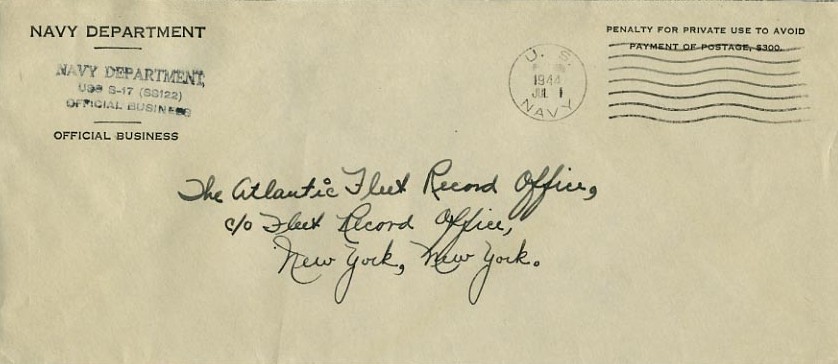 NAVY DEPARTMENT
NAVY DEPARTMENT,
USS S-17 (SS122)
OFFICIAL BUSINESS
OFFICIAL BUSINESS
U. S.
1944
JUL 1
NAVY
PENALTY FOR PRIVATE USE TO AVOID
PAYMENT OF POSTAGE, $300.
The Atlantic Fleet Record Office,
c/o Fleet Record Office,
New York, New York.